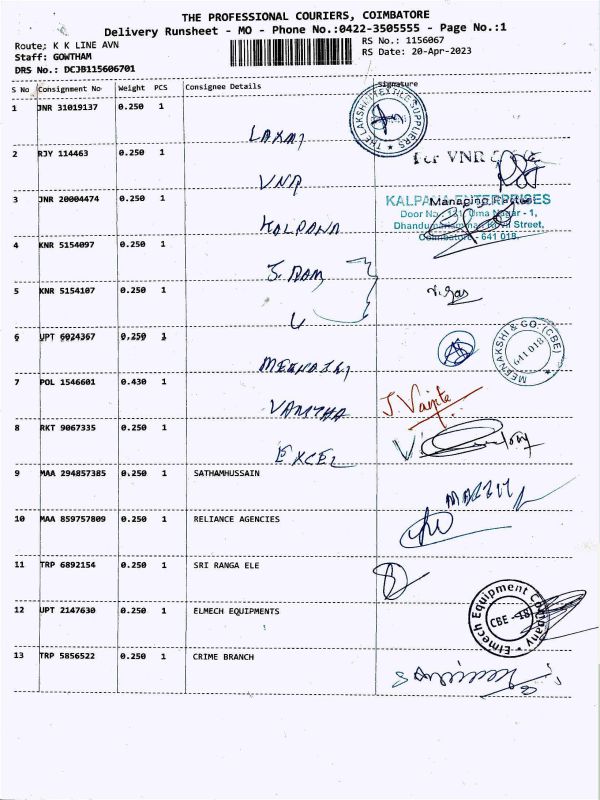 THE PROFESSIONAL COURIERS, COIMBATORE
Delivery Runsheet - MO - Phone No.:0422-3505555 - Page No.:1
Route; K K LINE AVN
RS No.: 1156067
Staff: GOWTHAM
RS Date: 20-Apr-2023
DRS No.: DCJB115606701
S No Consignment No Weight PCS Consignee Details Signature
1 JNR 31019137 0.250 1 LAXMI
THE LAKSHMI TEXTILE SUPPLIERS
2 RJY 114463 0.250 1 VNR
For VNR
3 JNR 20004474 0.250 1 KALPANA
KALPANA ENTERPRISES
Managing Partner
Door No. 131, Uma Nagar - 1,
Street,
Coimbatore - 641 018.
4 KNR 5154097 0.250 1 J. RAM
5 KNR 5154107 0.250 1
6 UPT 6024367 0.250 1 MEENAKSHI
MEENAKSHI & CO (CBE)
641 018
7 POL 1546601 0.430 1 VANITHA
J. Vanitha
8 RKT 9067335 0.250 1 EXCEL
9 MAA 294857385 0.250 1 SATHAMHUSSAIN
10 MAA 859757809 0.250 1 RELIANCE AGENCIES
11 TRP 6892154 0.250 1 SRI RANGA ELE
12 UPT 2147630 0.250 1 ELMECH EQUIPMENTS
Elmech Equipment Company
CBE - 18
13 TRP 5856522 0.250 1 CRIME BRANCH